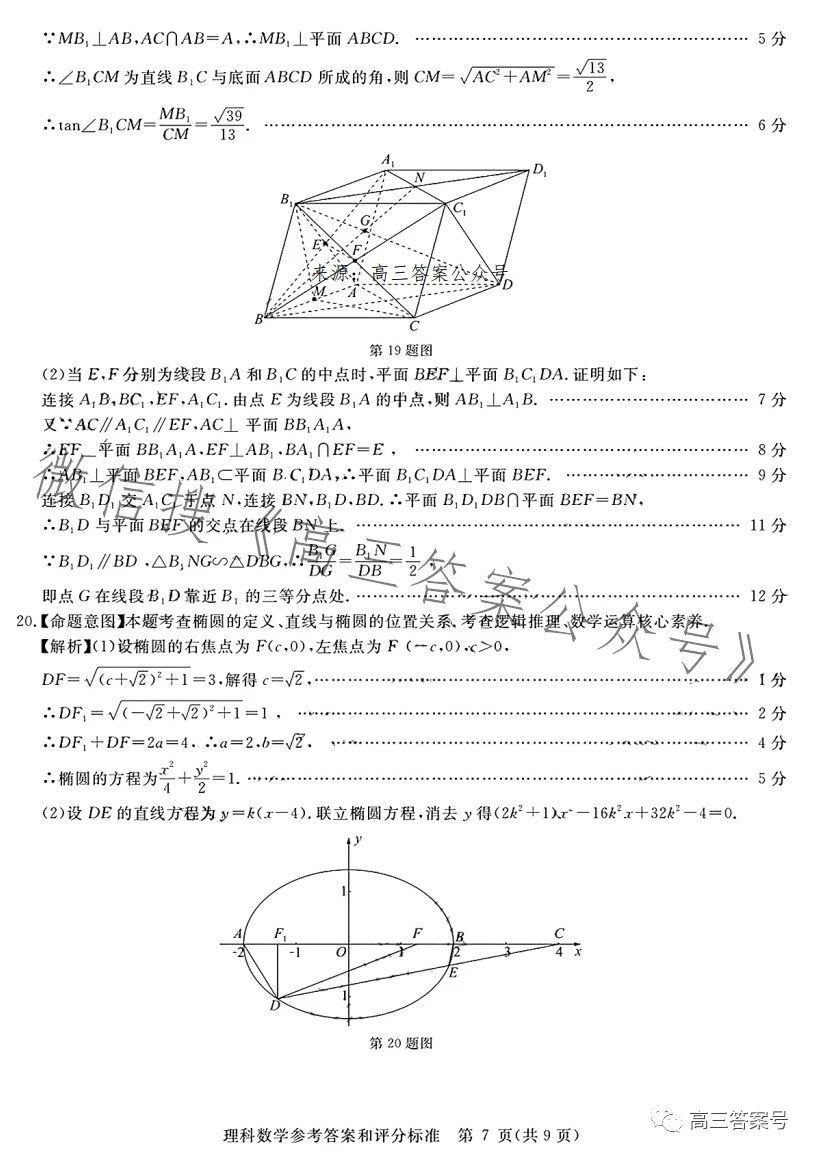 ∵MB₁⊥AB,AC∩AB=A,∴MB₁⊥平面 ABCD. …… 5 分
∴∠B₁CM 为直线 B₁C 与底面 ABCD 所成的角,则 CM=√(AC²+AM²)=√13/2,
∴tan∠B₁CM=MB₁/CM=√39/13. …… 6 分
A₁
D₁
N
B₁
C₁
G
E
F
来源:高三答案公众号
M
A
D
B
C
第 19 题图
(2)当 E,F 分别为线段 B₁A 和 B₁C 的中点时,平面 BEF⊥平面 B₁C₁DA.证明如下:
连接 A₁B,BC₁,EF,A₁C₁.由点 E 为线段 B₁A 的中点,则 AB₁⊥A₁B. …… 7 分
又∵AC∥A₁C₁∥EF,AC⊥ 平面 BB₁A₁A,
∴EF⊥平面 BB₁A₁A,EF⊥AB₁,BA₁∩EF=E , …… 8 分
∴AB₁⊥平面 BEF,AB₁⊂平面 B₁C₁DA,∴平面 B₁C₁DA⊥平面 BEF. …… 9 分
连接 B₁D₁ 交 A₁C₁ 于点 N,连接 BN,B₁D,BD.∴平面 B₁D₁DB∩平面 BEF=BN,
∴B₁D 与平面 BEF 的交点在线段 BN 上. …… 11 分
∵B₁D₁∥BD ,△B₁NG∽△DBG,∴B₁G/DG=B₁N/DB=1/2 ,
即点 G 在线段 B₁D 靠近 B₁ 的三等分点处. …… 12 分
微信搜《高三答案公众号》
20.【命题意图】本题考查椭圆的定义、直线与椭圆的位置关系,考查逻辑推理、数学运算核心素养.
【解析】(1)设椭圆的右焦点为 F(c,0),左焦点为 F (−c,0),c>0,
DF=√((c+√2)²+1)=3,解得 c=√2, …… 1 分
∴DF₁=√((−√2+√2)²+1)=1 , …… 2 分
∴DF₁+DF=2a=4, ∴a=2,b=√2, …… 4 分
∴椭圆的方程为x²/4+y²/2=1. …… 5 分
(2)设 DE 的直线方程为 y=k(x−4).联立椭圆方程,消去 y 得(2k²+1)x²−16k²x+32k²−4=0.
y
1
A F₁ F B C
-2 -1 O 1 2 3 4 x
E
1
D
第 20 题图
理科数学参考答案和评分标准 第 7 页(共 9 页)
高三答案号